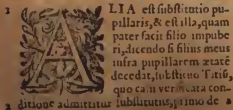 1 ALIA est substitutio pu-
pillaris, & est illa, quam
pater facit filio impube
ri, dicendo si filius meus
infra pupillarem ætatē
decedat, substituo Titiū,
quo casu verificata con-
2 ditione admittitur substitutus, primo de